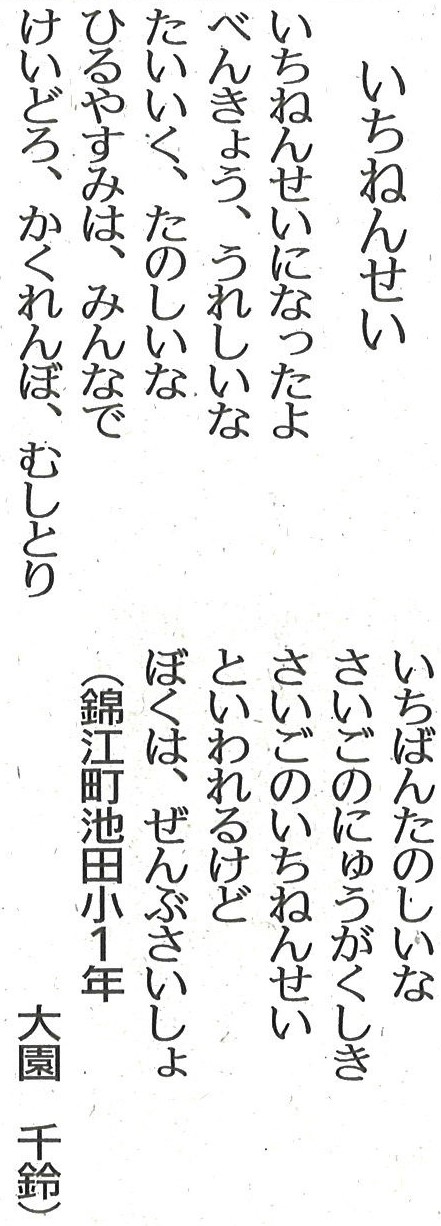 いちねんせい
いちねんせいになったよ
べんきょう、うれしいな
たいいく、たのしいな
ひるやすみは、みんなで
けいどろ、かくれんぼ、むしとり
いちばんたのしいな
さいごのにゅうがくしき
さいごのいちねんせい
といわれるけど
ぼくは、ぜんぶさいしょ
(錦江町池田小1年
大園 千鈴)